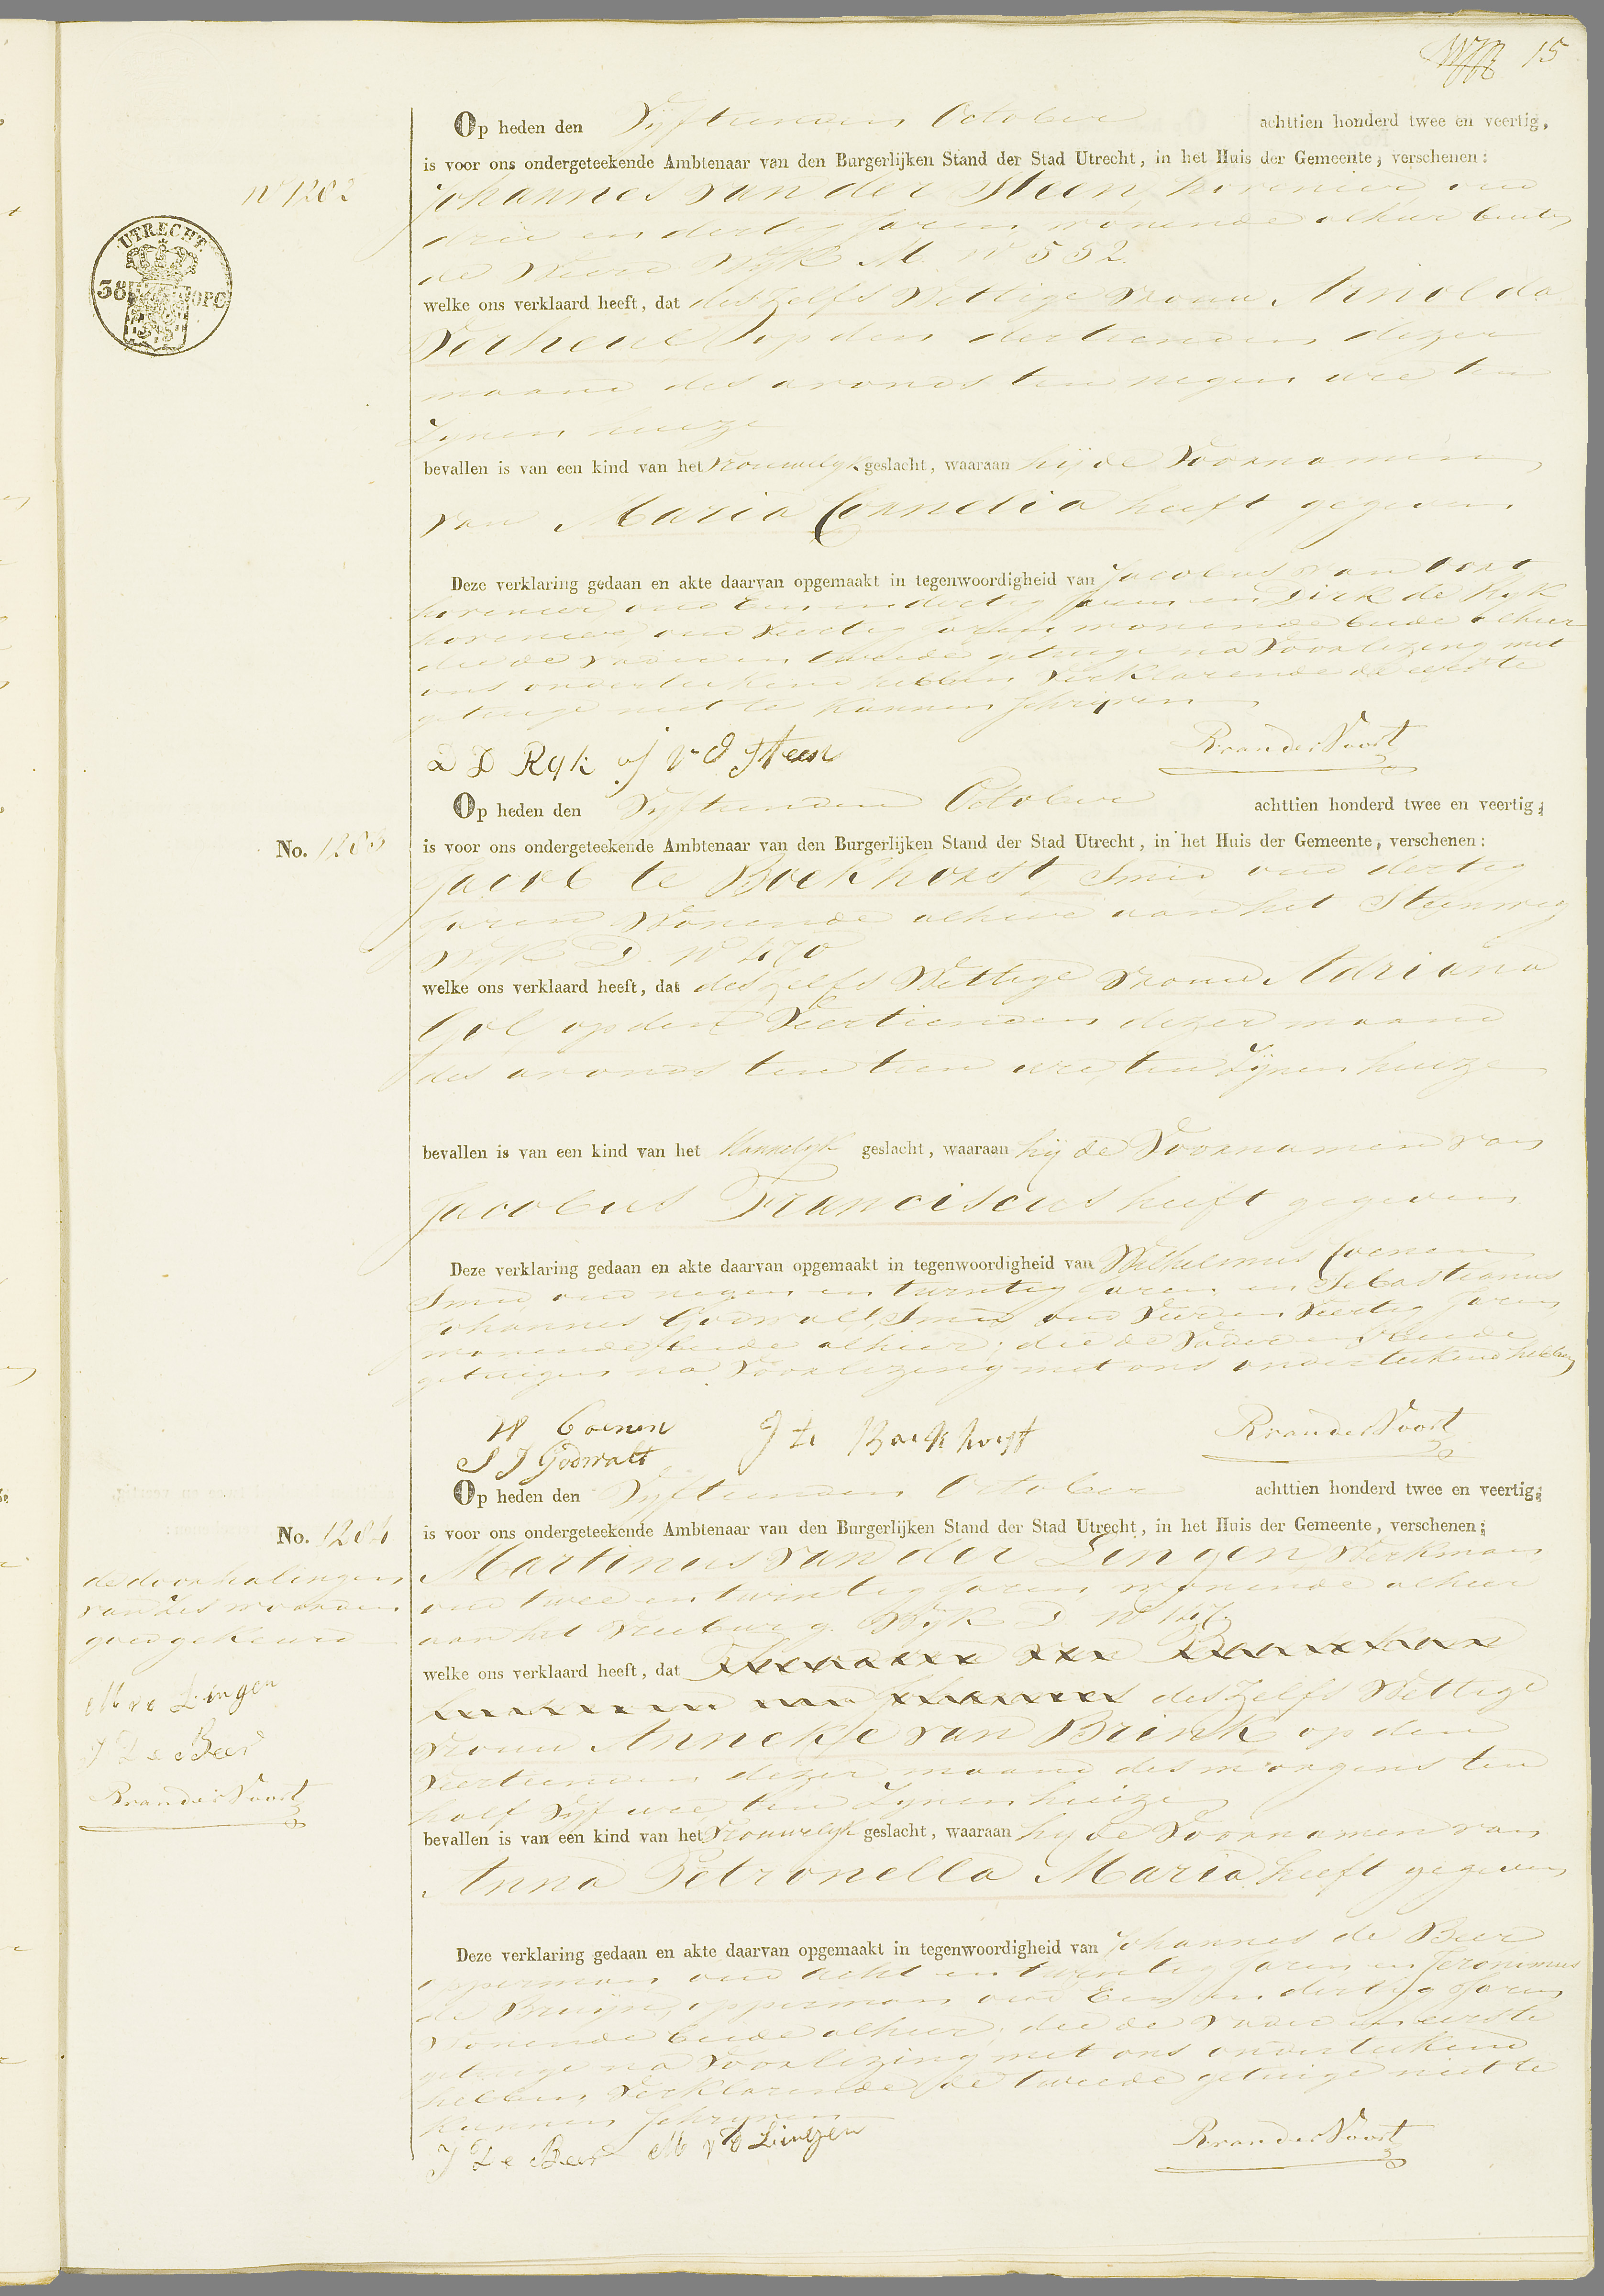 15
Op heden den Vijftienden October achttien honderd twee en veertig,
is voor ons ondergeteekende Ambtenaar van den Burgerlijken Stand der Stad Utrecht, in het Huis der Gemeente, verschenen:
No 1202
Johannes van der Steen, hovenier, oud
drie en dertig Jaren, wonende alhier buiten
de Weerd Wijk M. No 552.
UTRECHT
38 OPC
welke ons verklaard heeft, dat deszelfs Wettige Vrouw, Arnolda
Verheul op den dertienden dezer
maand des avonds ten negen ure ten
Zynen huize
bevallen is van een kind van het Vrouwelyk geslacht, waaraan hij de Voornamen
van Maria Cornelia heeft gegeven.
Deze verklaring gedaan en akte daarvan opgemaakt in tegenwoordigheid van Jacobus van Oort
hovenier oud Een en dertig Jaren en Dirk de Ryk
hovenier, oud Veertig Jaren wonende beide alhier
die de Vader en tweede getuige na Voorlezing met
ons onderteekend hebben, Verklarende de eerste
getuige niet te kunnen schryven
D D Ryk J v d Steen RvanderVoort
Op heden den Vyftienden October achttien honderd twee en veertig;
No. 1203 is voor ons ondergeteekende Ambtenaar van den Burgerlijken Stand der Stad Utrecht, in het Huis der Gemeente, verschenen:
Jacob te Boekhorst, Smid oud dertig
Jaren Wonende alhier aan het Steenweg
Wyk D. No 470
welke ons verklaard heeft, dat deszelfs Wettige Vrouw, Adriana
Gol, op den Veertienden dezer maand
des avonds ten tien ure, ten Zynen huize
bevallen is van een kind van het Mannelyk geslacht, waaraan hij de Voornamen van
Jacobus Franciscus heeft gegeven
Deze verklaring gedaan en akte daarvan opgemaakt in tegenwoordigheid van Wilhelmus Coenen
Smid, oud negen en twintig Jaren en Sebastianus
Johannes Godwalt, Smid oud Vier en Veertig Jaren
wonende beide alhier; die de Vader en beide
getuigen na Voorlezing met ons onderteekend hebben
W Coenen J te Boekhorst RvanderVoort
S J Godwalt
Op heden den Vyftienden October achttien honderd twee en veertig;
No. 1204 is voor ons ondergeteekende Ambtenaar van den Burgerlijken Stand der Stad Utrecht, in het Huis der Gemeente, verschenen;
Martinus van der Lingen, Werkman
oud twee en twintig Jaren, wonende alhier
aan het Wyk D No 147.
de doorhalingen
van zes woorden
goedgekeurd
M v d Lingen
J De Beer
RvanderVoort
welke ons verklaard heeft, dat
deszelfs Wettige
Vrouw Annekje van Brink op den
Veertienden dezer maand des morgens ten
half Vyf ure ten Zynen huize
bevallen is van een kind van het Vrouwelyk geslacht, waaraan hy de Voornamen van
Anna Petronella Maria heeft gegeven
Deze verklaring gedaan en akte daarvan opgemaakt in tegenwoordigheid van Johannes de Beer
opperman oud acht en twintig Jaren en Jeronimus
de Bruijn, opperman oud Een en dertig Jaren
Wonende beide alhier, die de Vader en eerste
getuige na Voorlezing met ons onderteekend
hebben, Verklarende de tweede getuige niet te
kunnen Schryven
J De Beer M v d Lingen RvanderVoort